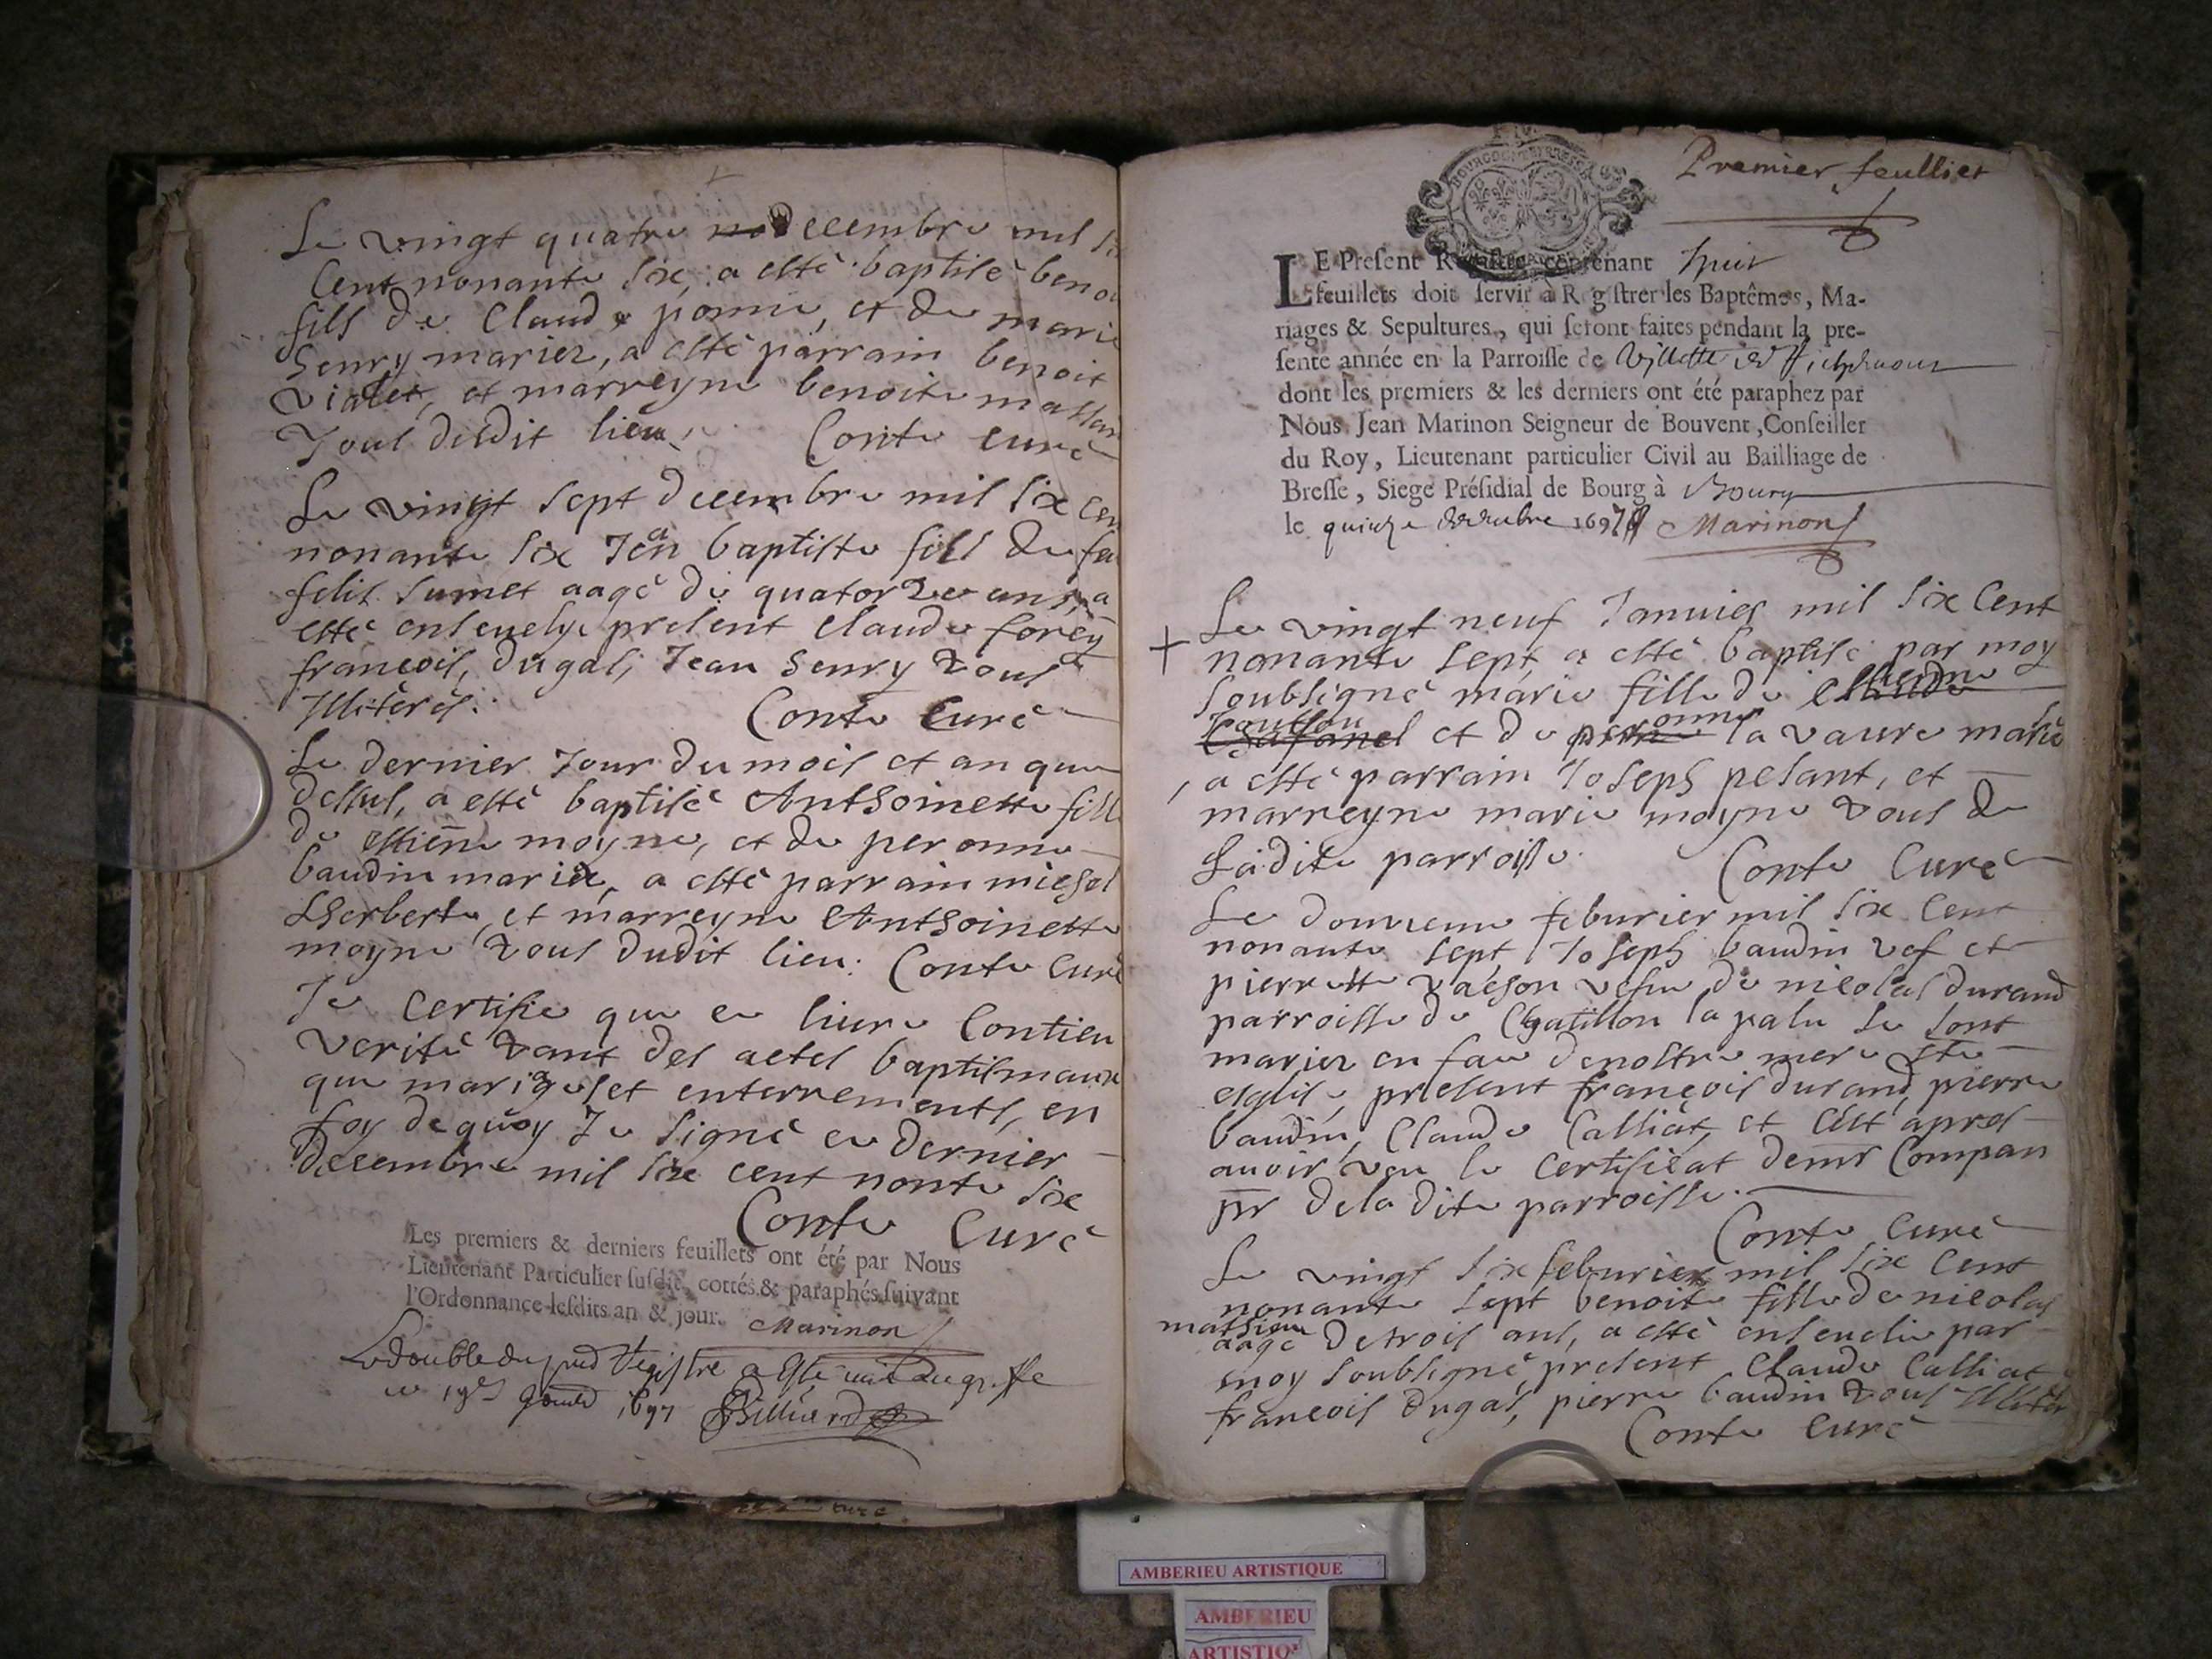 Le vingt quatre decembre mil si
Cent nonante six, a esté baptisé benoi
fils de Claude pomie, et de marie
henry mariez, a esté parrain benoit
vialet, et marreyne benoite
Tous dudit lieu, Conte Curé
Le vingt sept decembre mil six cen
nonante six Jean baptiste fils de feu
felis sumet aagé de quatorze ans, a
esté ensevely, present Claude forey
françois dugas, Jean henry tous
Illiterés. Conte Curé
Le dernier Jour du mois et an que
dessus, a esté baptisée Anthoinette fille
de estiene moyne, et de peronne
baudin mariez, a esté parrain michel
Lherberte, et marreyne Anthoinette
moyne tous dudit lieu. Conte Curé
Je Certifie que ce livre Contien
verité tant des actes baptismaux
que mariages et enterrements, en
foy dequoy Je signé ce dernier
decembre mil six cent nonte six
Conte Curé
Les premiers & derniers feuillets ont été par Nous
Lieutenant Particulier susdit, cottés & paraphés suivant
l'Ordonnance lesdits an & jour. Marinon
Le double du pnt Registre a esté mis au greffe
ce 1697 Billiard
Premier feulliet
LE Present Registre contenant huit
feuillets doit servir à Registrer les Baptêmes, Ma-
riages & Sepultures, qui seront faites pendant la pre-
sente année en la Parroisse de Villette et Richemont
dont les premiers & les derniers ont été paraphez par
Nous Jean Marinon Seigneur de Bouvent, Conseiller
du Roy, Lieutenant particulier Civil au Bailliage de
Bresse, Siege Présidial de Bourg à Bourg
le quinze decembre 1696 Marinon
Le vingt neuf Janvier mil six Cent
nonante sept, a esté baptisé par moy
soubsigné marie fille de estienne
et de peronne la vaure mariés
, a esté parrain Joseph pesant, et
marreyne marie moyne tous de
Ladite parroisse. Conte Curé
Le douzieme feburier mil six Cent
nonante sept, Joseph baudin vef et
pierrette vachon vefue de nicolas durand
parroisse de Chatillon la palu se sont
mariez en face de nostre mere ste
esglise, present françois durand, pierre
baudin, Claude Calliat, et c'est apres
avoir veu le Certificat de mr Compan
pr de la dite parroisse.
Conte Curé
Le vingt six feburier mil six Cent
nonante sept benoite fille de nicolas
mathieu aagé de trois ans, a esté ensevelie par
moy soubsigné, present Claude Calliat
françois dugas, pierre baudin tous Illiter
Conte Curé
AMBERIEU ARTISTIQUE
AMBERIEU
ARTISTIQ